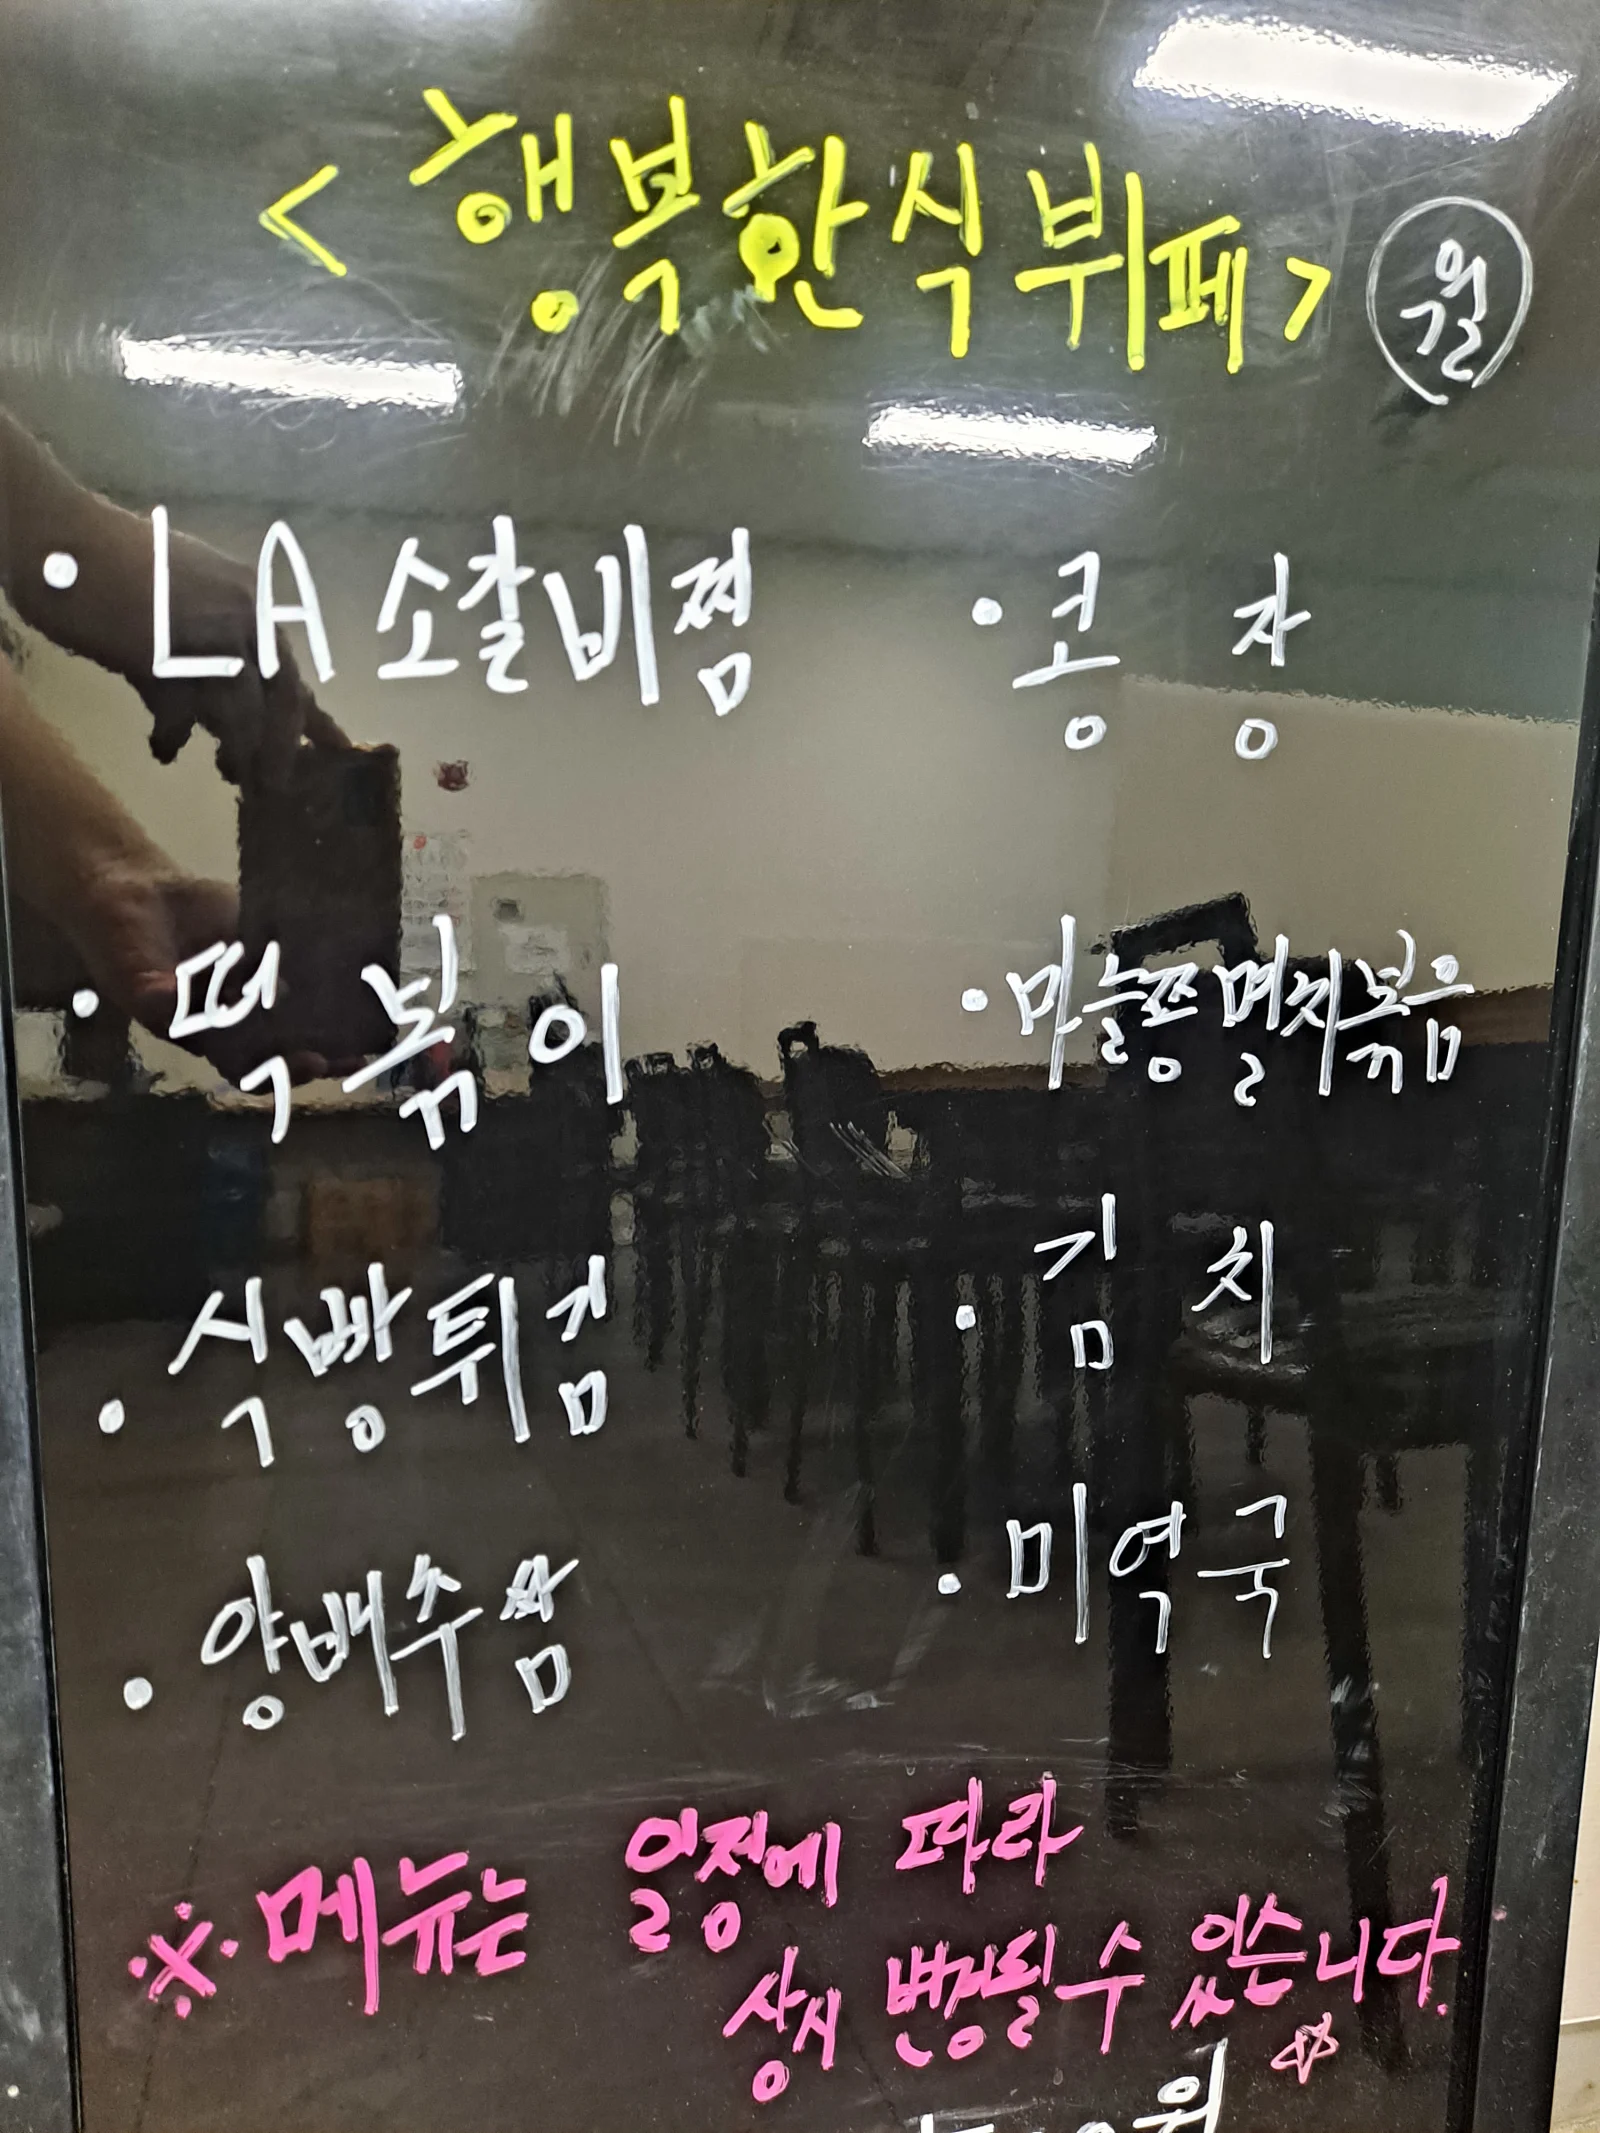 <행복한식뷔페> 월
• LA소갈비찜
• 콩장
• 떡볶이
• 마늘쫑멸치볶음
• 식빵튀김
• 김치
• 양배추쌈
• 미역국
※ 메뉴는 일정에 따라
상시 변경될 수 있습니다.
원